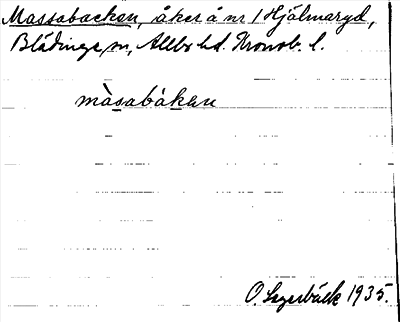 Massabacken, åker å nr 1 Hjälmaryd,
Blädinge sn, Allbo hd. Kronob. l.
màsabàkan
O. Lagerbäck 1935.